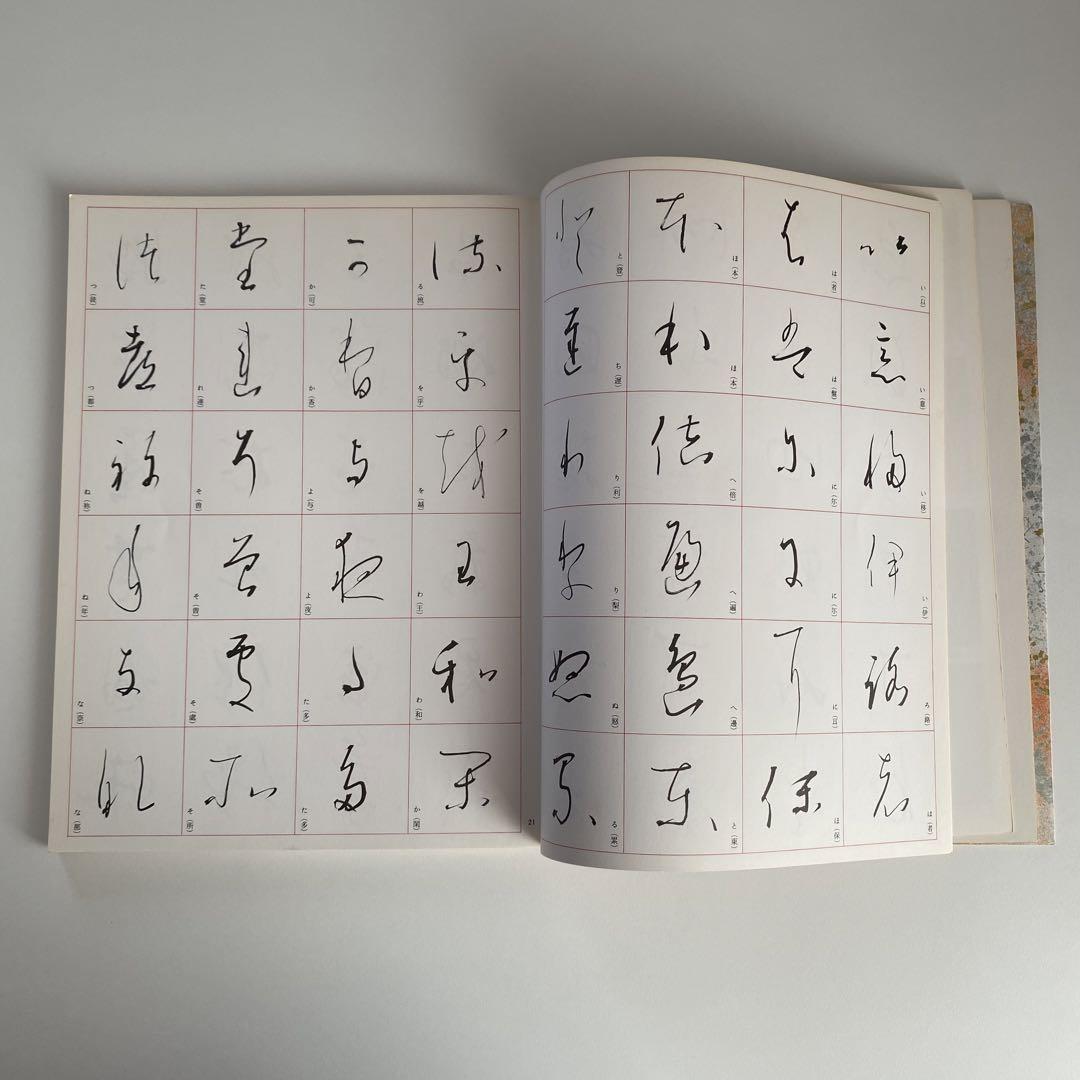 い(以)
い(意)
い(移)
い(伊)
ろ(路)
は(者)
は(者)
は(盤)
に(尓)
に(尓)
に(耳)
ほ(保)
ほ(本)
ほ(本)
へ(倍)
へ(遍)
へ(邊)
と(東)
と(登)
ち(遅)
り(利)
り(梨)
ぬ(怒)
る(累)
る(流)
を(乎)
を(越)
わ(王)
わ(和)
か(閑)
か(可)
か(香)
よ(与)
よ(夜)
た(多)
た(多)
た(堂)
れ(連)
そ(曽)
そ(曽)
そ(處)
そ(所)
つ(徒)
つ(都)
ね(祢)
ね(年)
な(奈)
な(那)
21